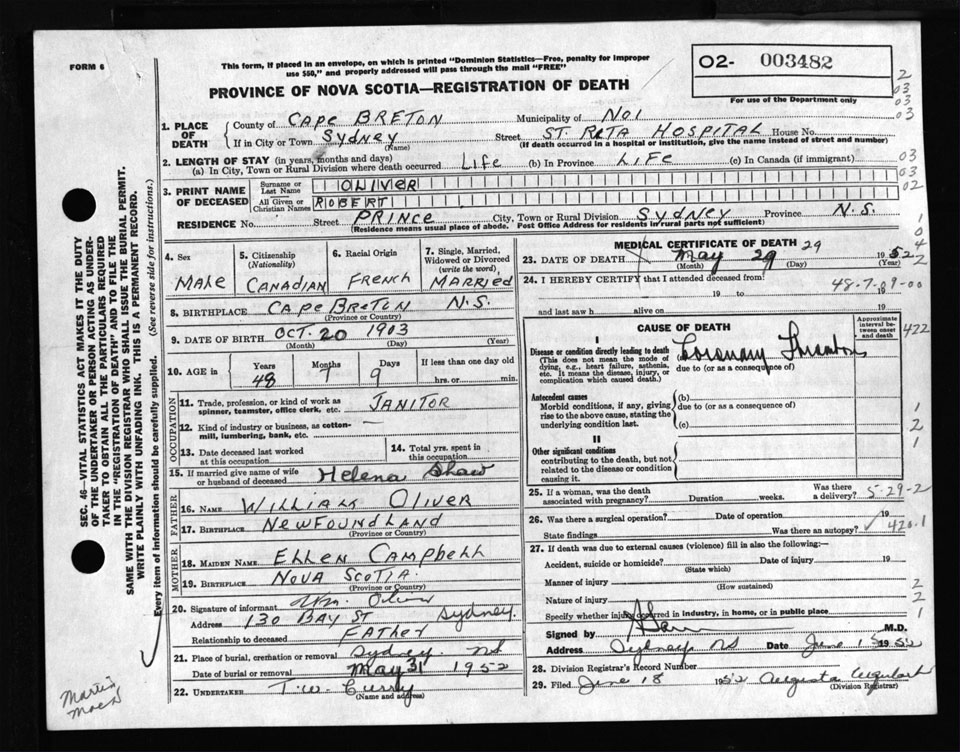 FORM 6
This form, if placed in an envelope, on which is printed "Dominion Statistics—Free, penalty for improper
use $50," and properly addressed will pass through the mail "FREE"
O2- 003482
For use of the Department only
PROVINCE OF NOVA SCOTIA—REGISTRATION OF DEATH
2
03
03
03
1. PLACE OF DEATH
County of CAPE BRETON Municipality of No1
If in City or Town SYDNEY Street ST. RITA HOSPITAL House No.
(Name) (If death occurred in a hospital or institution, give the name instead of street and number)
2. LENGTH OF STAY (in years, months and days)
(a) In City, Town or Rural Division where death occurred LIFE (b) In Province LIFE (c) In Canada (if immigrant)
03
03
02
3. PRINT NAME OF DECEASED
Surname or Last Name OLIVER
All Given or Christian Names ROBERT
RESIDENCE No. Street PRINCE City, Town or Rural Division SYDNEY Province N.S.
(Residence means usual place of abode. Post Office Address for residents in rural parts not sufficient)
4. Sex
MALE
5. Citizenship (Nationality)
CANADIAN
6. Racial Origin
FRENCH
7. Single, Married, Widowed or Divorced (write the word)
MARRIED
8. BIRTHPLACE CAPE BRETON N.S.
(Province or Country)
9. DATE OF BIRTH OCT. 20 1903
(Month) (Day) (Year)
10. AGE in Years 48 Months 7 Days 9 If less than one day old hrs. or min.
OCCUPATION
11. Trade, profession, or kind of work as spinner, teamster, office clerk, etc. JANITOR
12. Kind of industry or business, as cotton-mill, lumbering, bank, etc.
13. Date deceased last worked at this occupation
14. Total yrs. spent in this occupation
15. If married give name of wife or husband of deceased Helena Shaw
FATHER
16. NAME WILLIAM OLIVER
17. BIRTHPLACE NEWFOUNDLAND
(Province or Country)
MOTHER
18. MAIDEN NAME ELLEN CAMPBELL
19. BIRTHPLACE NOVA SCOTIA
(Province or Country)
20. Signature of informant Wm. Oliver
Address 130 BAY ST SYDNEY.
Relationship to deceased FATHER
21. Place of burial, cremation or removal Sydney. NS
Date of burial or removal May 31 1952
22. UNDERTAKER T.W. Curry
(Name and address)
MEDICAL CERTIFICATE OF DEATH 29
23. DATE OF DEATH May 29 1952
(Month) (Day) (Year)
24. I HEREBY CERTIFY that I attended deceased from:
48-7-09-00
19 to 19
and last saw h alive on 19
CAUSE OF DEATH
Approximate interval between onset and death
422
I
Disease or condition directly leading to death
(This does not mean the mode of dying, e.g., heart failure, asthenia, etc. It means the disease, injury, or complication which caused death.)
Coronary
due to (or as a consequence of)
Antecedent causes
Morbid conditions, if any, giving rise to the above cause, stating the underlying condition last.
(b)
due to (or as a consequence of)
(c)
II
Other significant conditions
contributing to the death, but not related to the disease or condition causing it.
1
2
1
25. If a woman, was the death associated with pregnancy? Duration weeks. Was there a delivery? 5-29-2
26. Was there a surgical operation? Date of operation 19
State findings Was there an autopsy? 420.1
27. If death was due to external causes (violence) fill in also the following:—
Accident, suicide or homicide?
(State which)
Manner of injury 2
(How sustained)
Nature of injury 2
Specify whether injury occurred in industry, in home, or in public place 1
Signed by M.D.
Address Sydney NS Date June 1952
28. Division Registrar's Record Number
29. Filed June 18 1952 Augusta
(Division Registrar)
SEC. 46—VITAL STATISTICS ACT MAKES IT THE DUTY
OF THE UNDERTAKER OR PERSON ACTING AS UNDER-
TAKER TO OBTAIN ALL THE PARTICULARS REQUIRED
IN THE "REGISTRATION OF DEATH" AND TO FILE THE
SAME WITH THE DIVISION REGISTRAR WHO SHALL ISSUE THE BURIAL PERMIT.
WRITE PLAINLY WITH UNFADING INK. THIS IS A PERMANENT RECORD.
Every item of information should be carefully supplied. (See reverse side for instructions.)